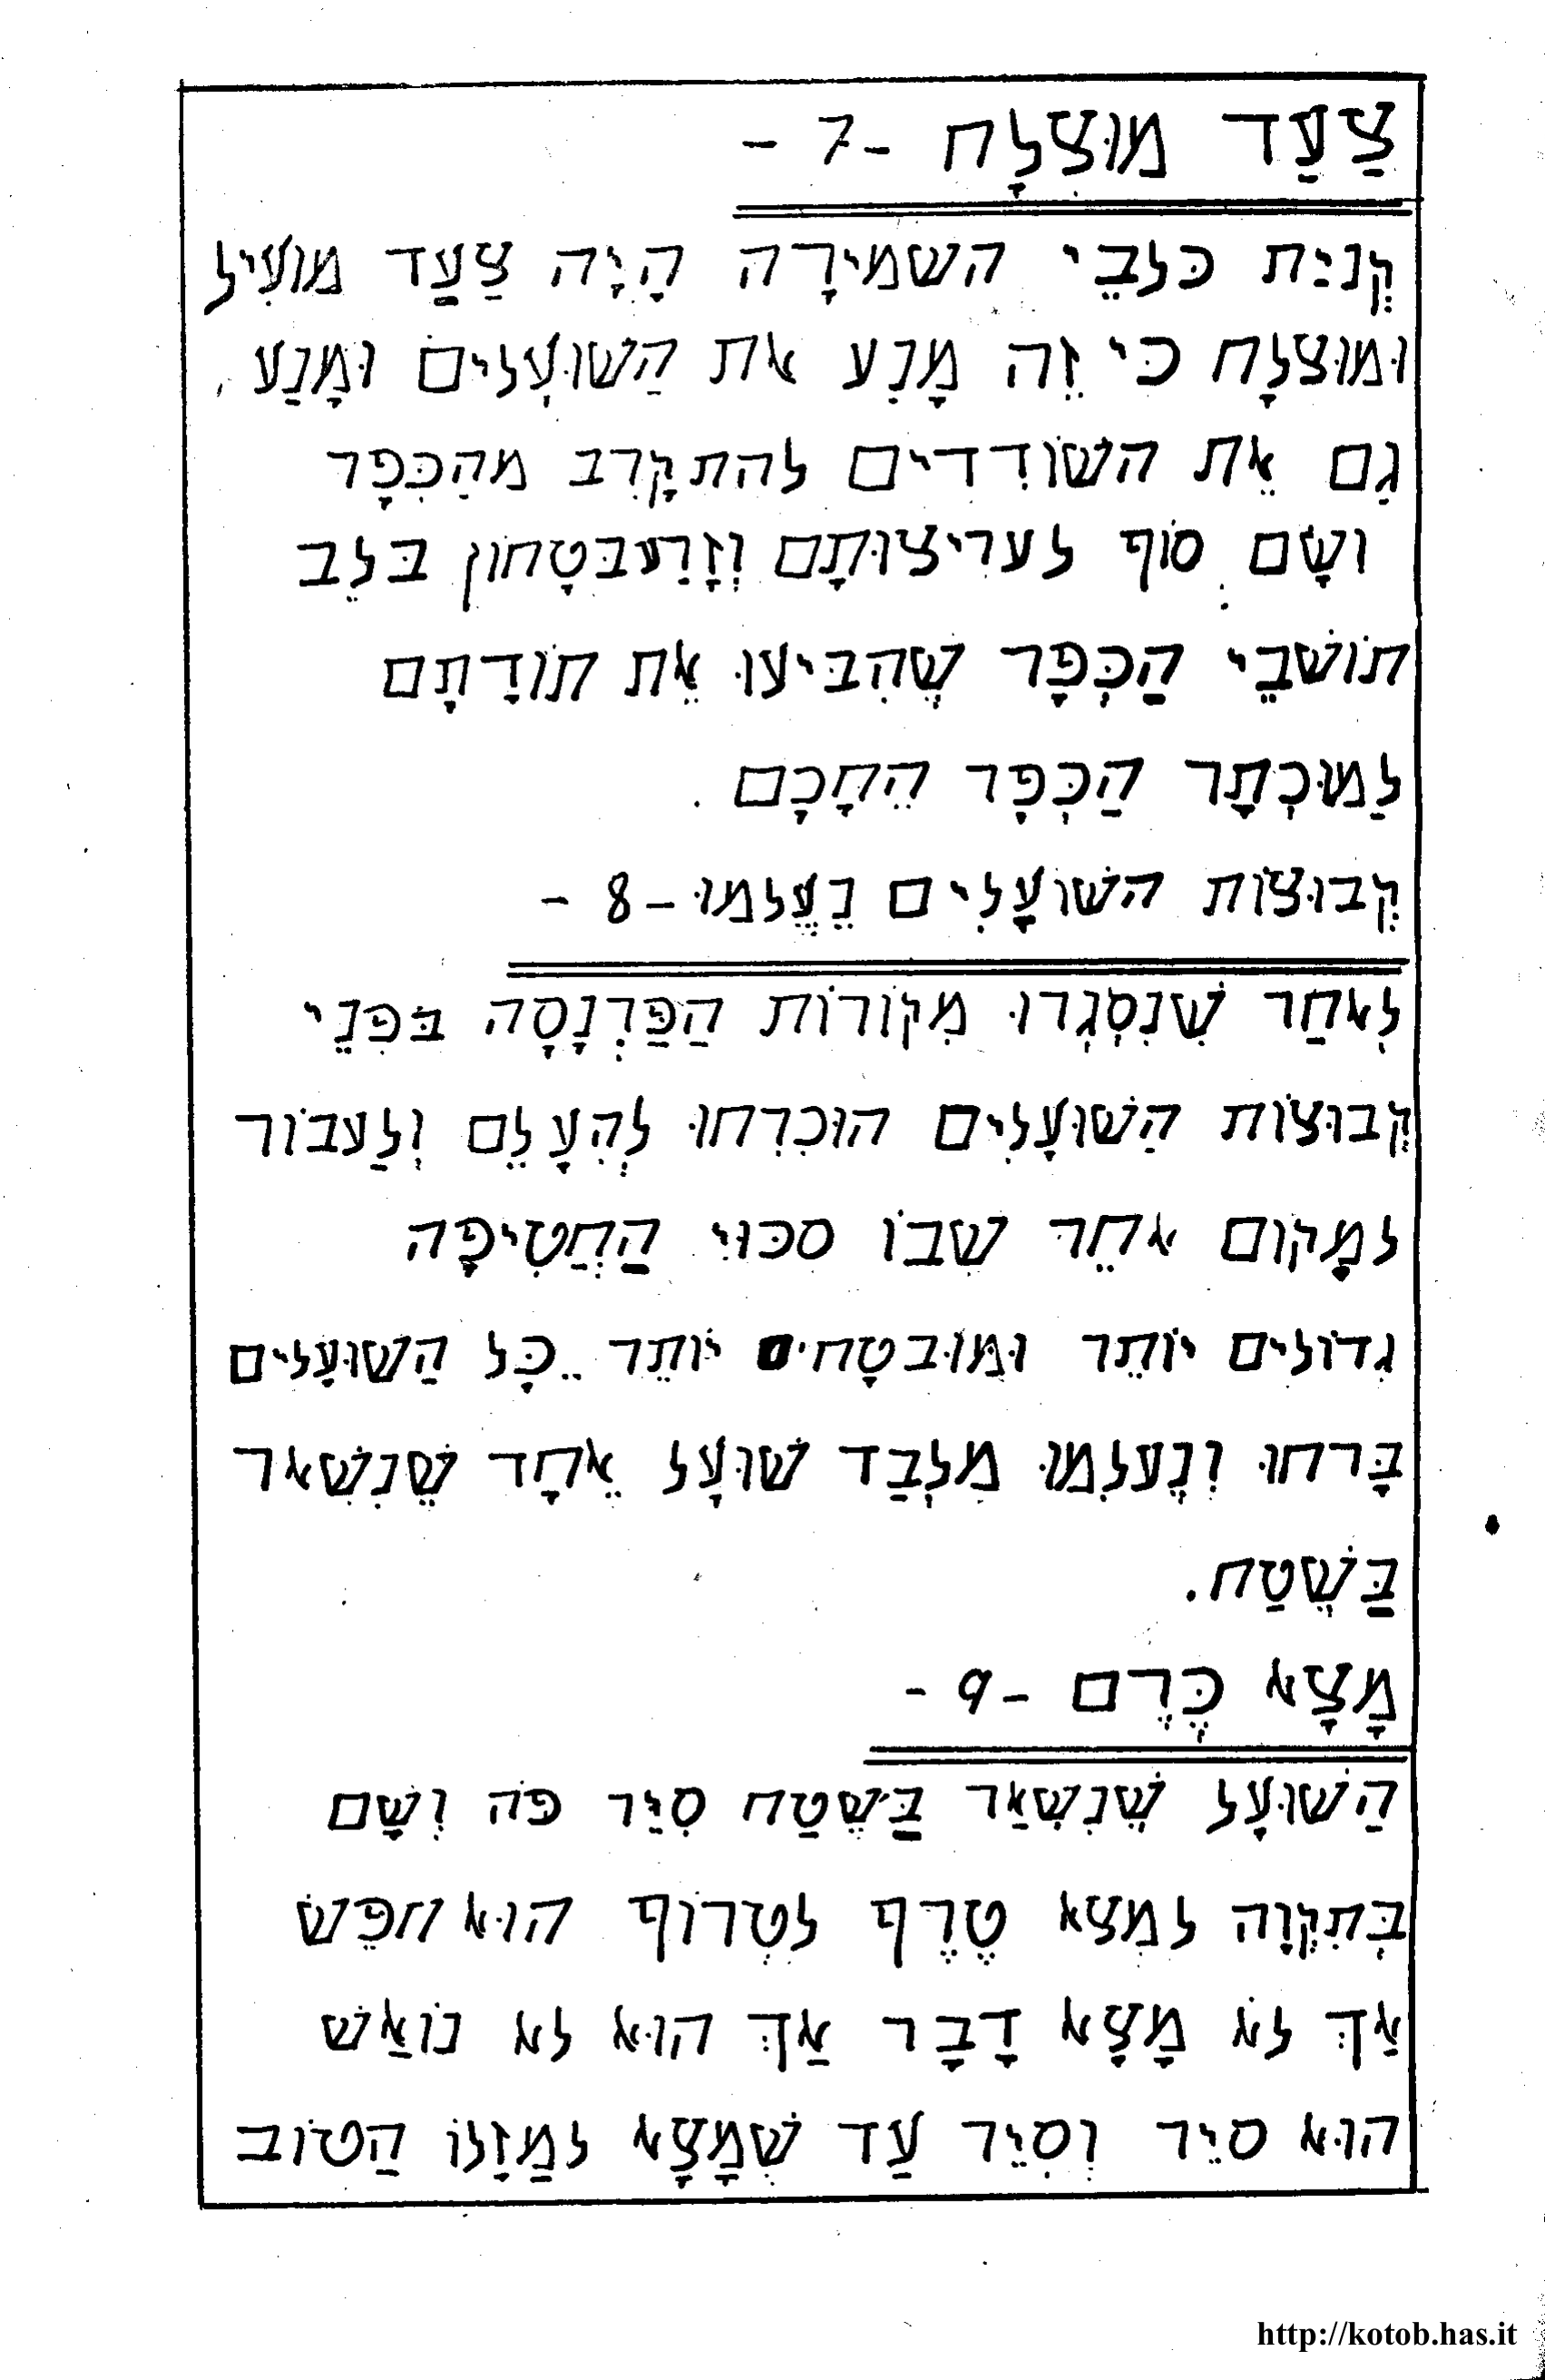 צַעַד מוּצלָח -7-
קְנִיַת כּלבֵי השמירָה הָיָה צַעַד מוֹעִיל
וּמוּצלָח כִּי זֶה מָנַע את הַשׁוּעָלים וּמָנַע
גַם אֵת השׁוֹדְדים להתקָרב מהַכְּפָר
ושָׂם סוֹף לעריצוּתָם וְזָרַע בּטָחוֹן בּלֵב
תוֹשבֵי הַכְּפָר שֶהִבּיעוּ אֵת תוֹדָתָם
לַמוּכְתָר הַכְּפָר הֵחָכָם .
קְבוּצוֹת השׁוֹעָלִים נֵעֱלמוּ -8-
לְאחַר שִׁנִסְגְרוּ מִקוֹרוֹת הַפַּרְנָסָה בּפְנֵי
קְבוּצוֹת הַשׁוּעָלִים הוּכְרחוּ לְהִעָלֵם וְלַעבוֹר
למָקוֹם אחֵר שִבוֹ סכּוּיִ הַחֲטִיפָה
גדוֹלִים יוֹתֵר וּמוּבטָחים יוֹתֵר .. כָּל הַשׁוּעָלים
בָּרחוּ וְנֶעֶלמוּ מִלְבַד שׁוּעָל אֵחָד שֶׁנִשְׁאר
בַּשֶּטַח.
מָצָא כֶּרֶם -9-
הַשׁוּעָל שֶׁנִשְׁאַר בַּשֶּטַח סִיֵר פֹּה וְשָׁם
בְּתִקְוָה למצא טֶרֶף לִטְרוֹף הוּא חפֵּשׂ
אַךְ לֹא מָצָא דָבָר אַךְ הוּא לא נוֹאַשׁ
הוּא סיֵר וְסִיֵר עַד שִׁמָצָא למַזָלוֹ הַטוֹב
http://kotob.has.it